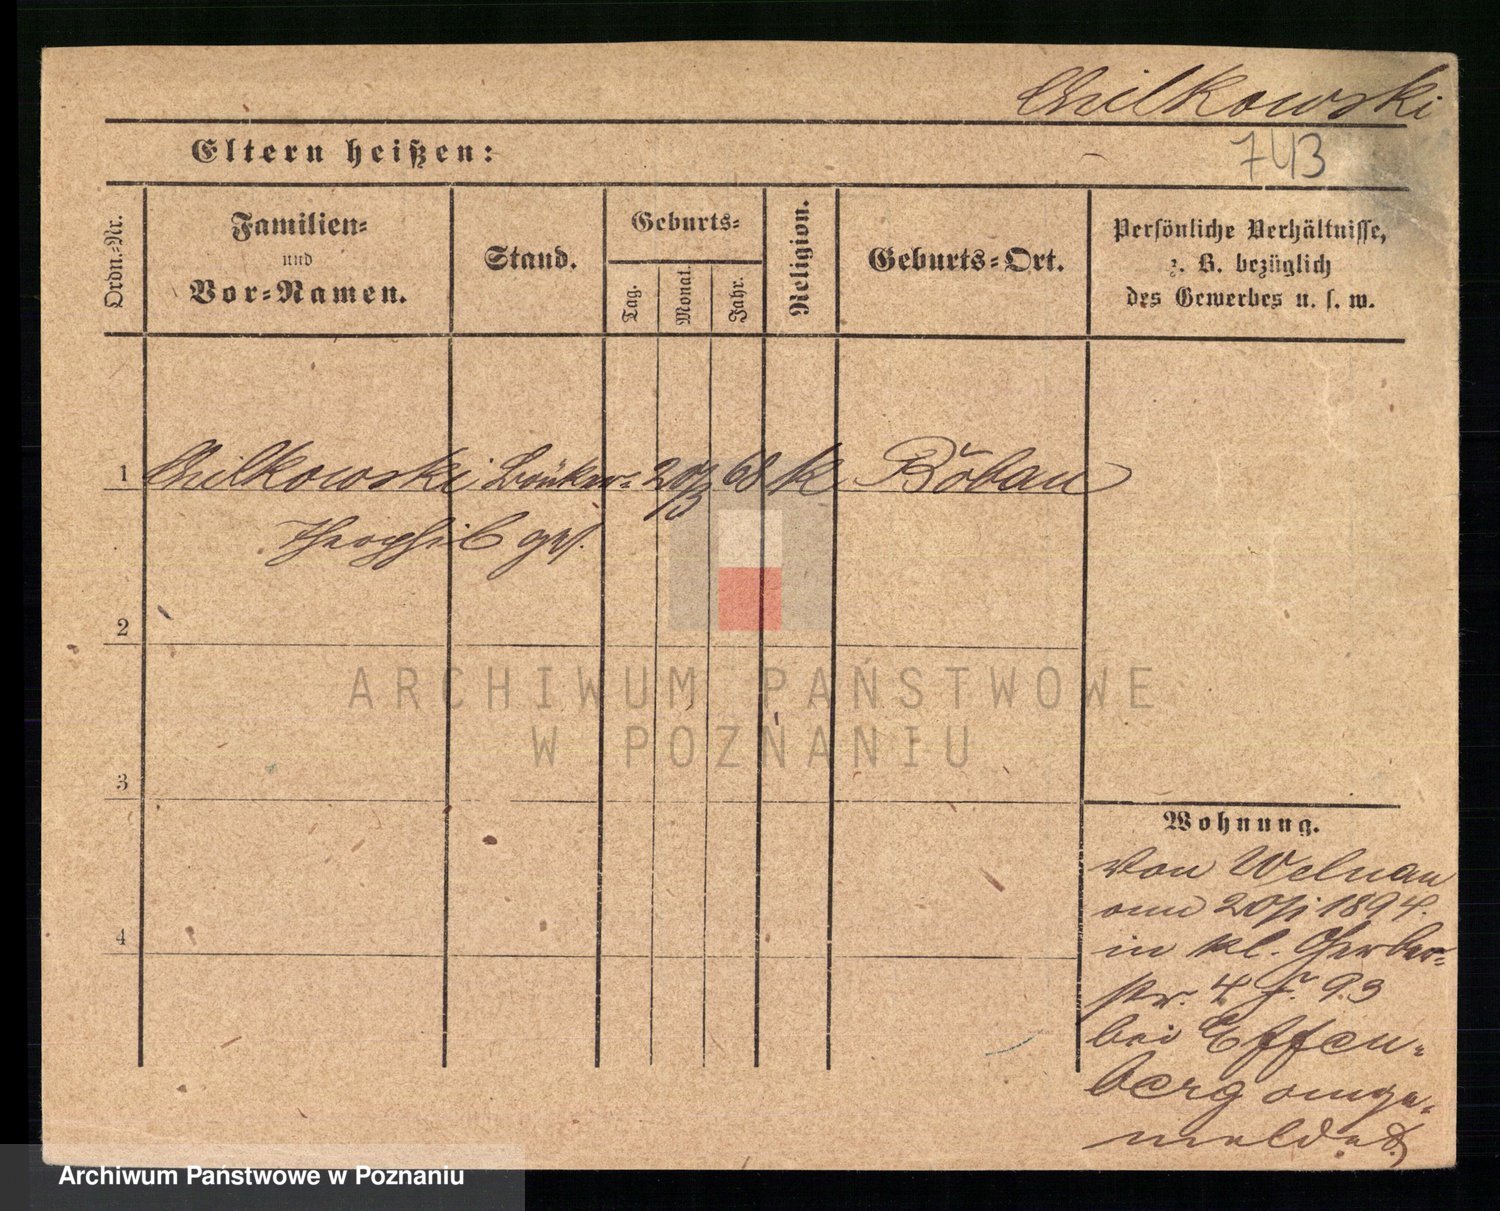 Chilkowski
743
Eltern heißen:
Ordn.-Nr.
Familien-
und
Vor-Namen.
Stand.
Geburts-
Tag.
Monat.
Jahr.
Religion.
Geburts-Ort.
Persönliche Verhältnisse,
z. B. bezüglich
des Gewerbes u. s. w.
1 Chilkowski 20/3 68 K
Theophil
2
3
4
Wohnung.
von Welnau
1894.
in kl. Gerber-
str. 4 93
bei Effen-
berg ange-
meldet.
ARCHIWUM PAŃSTWOWE
W POZNANIU
Archiwum Państwowe w Poznaniu